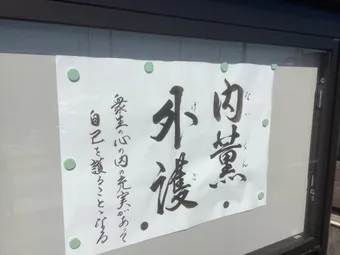 内薫
ないくん
外護
げご
衆生の心の内の充実があって
自己を護ることとなる